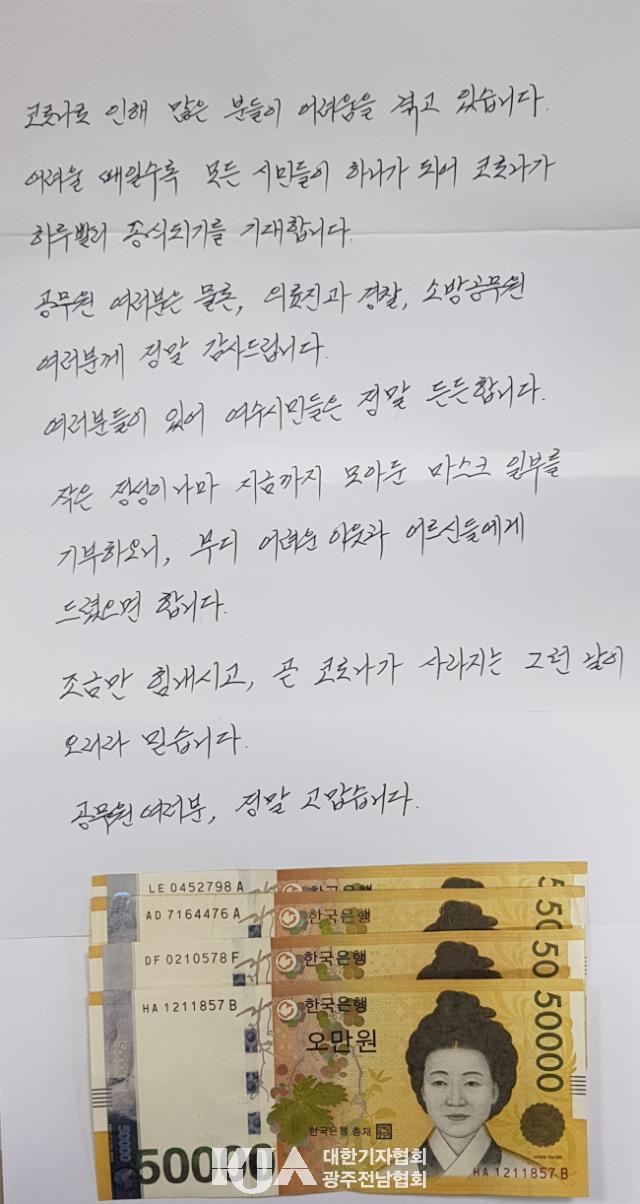 코로나로 인해 많은 분들이 어려움을 겪고 있습니다.
어려울 때일수록 모든 시민들이 하나가 되어 코로나가
하루빨리 종식되기를 기대합니다.
공무원 여러분은 물론, 의료진과 경찰, 소방공무원
여러분께 정말 감사드립니다.
여러분들이 있어 여수시민들은 정말 든든합니다.
작은 정성이나마 지금까지 모아둔 마스크 일부를
기부하오니, 부디 어려운 이웃과 어르신들에게
드렸으면 합니다.
조금만 힘내시고, 곧 코로나가 사라지는 그런 날이
오리라 믿습니다.
공무원 여러분, 정말 고맙습니다.
LE 0452798 A 한국은행 5
AD 7164476 A 한국은행 50
DF 0210578 F 한국은행 50
HA 1211857 B 한국은행 50000
오만원
한국은행 총재
50000
50000
HA 1211857 B
KJA 대한기자협회
광주전남협회